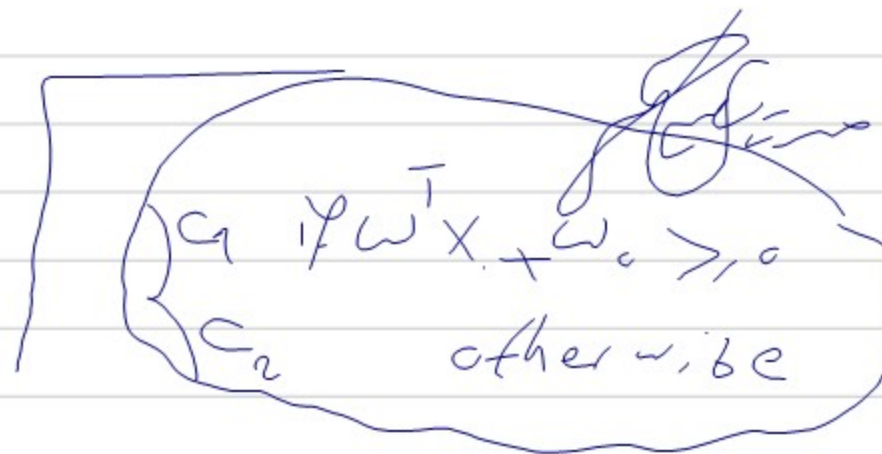 C1 if ω^T x + ω0 >, 0
C2 otherwise